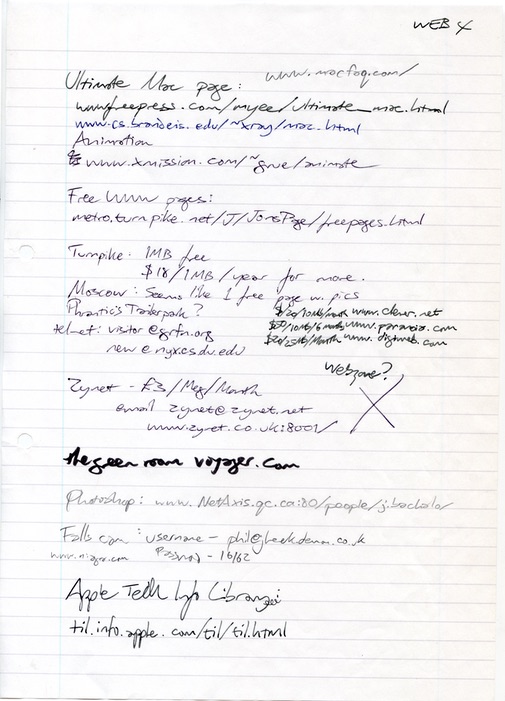 WEB 4
www.macfaq.com/
Ultimate Mac page:
www.freepress.com/myee/Ultimate_mac.html
www.cs.brandeis.edu/~xray/mac.html
Animation
www.xmission.com/~grue/animate
Free WWW pages:
metro.turnpike.net/J/JonsPage/freepages.html
Turnpike: 1MB free
$18/1MB/year for more.
Moscow: Seems like 1 free page w. pics
Phrantic's Trailerpark?
telnet: visitor@grfn.org
new@nyx.cs.du.edu
$20/10Mb/month www.clever.net
/10Mb/6 months www.paranoia.com
$20/25Mb/Month www.digiweb.com
Webzone?
Zynet - £3/Meg/Month
email zynet@zynet.net
www.zynet.co.uk:8001/
thegreenroom voyager.com
Photoshop: www.NetAxis.qc.ca:80/people/j.bachelor
Falls cam: username - phil@ .co.uk
www.niagar.com Password - 16/62
Apple Tech Info Library
til.info.apple.com/til/til.html